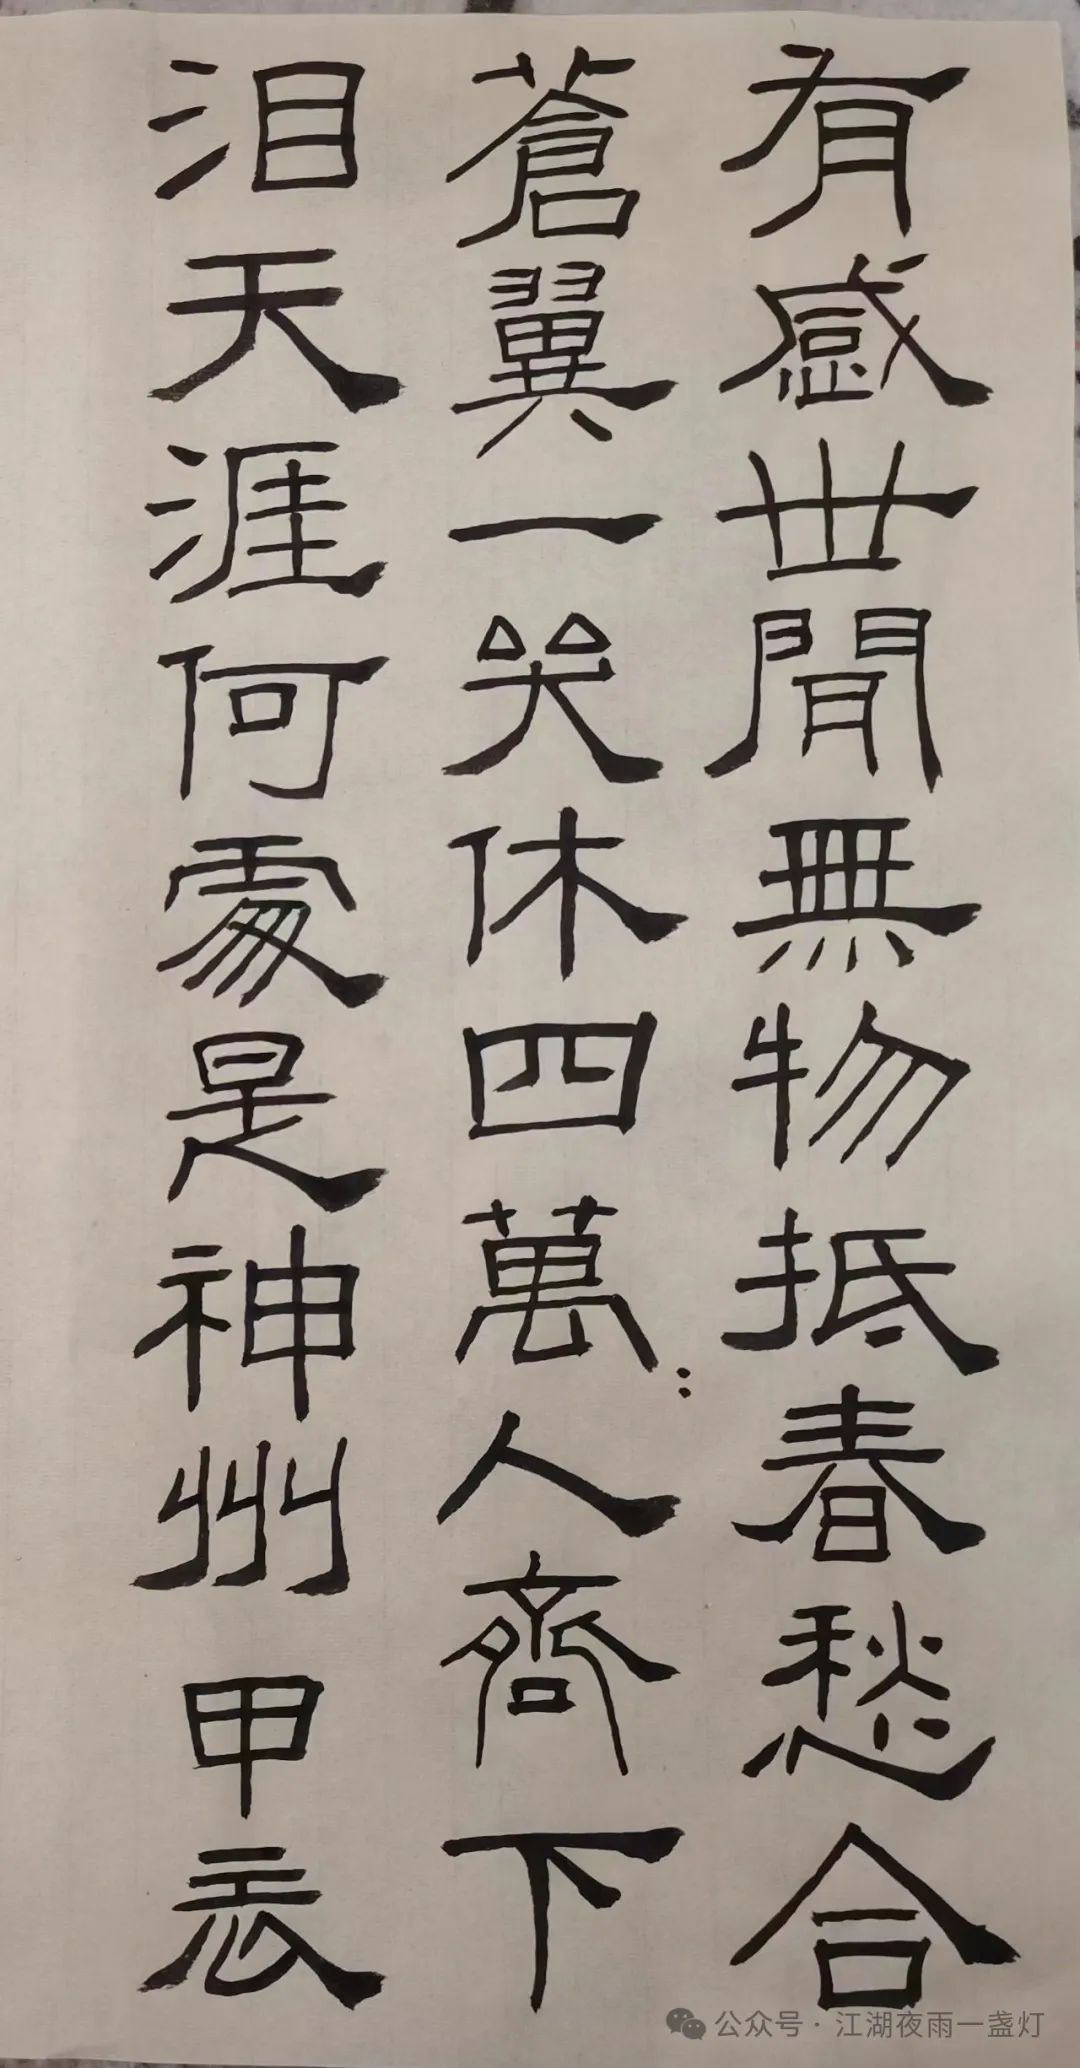 有感世閒無物抵春愁合
蒼翼一哭休四萬：人齊下
泪天涯何處是神州 甲辰
公众号·江湖夜雨一盏灯